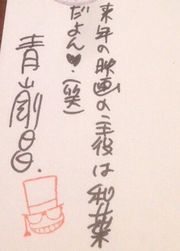 来年の映画の主役は和葉
だよん♥.(笑)
青山剛昌.